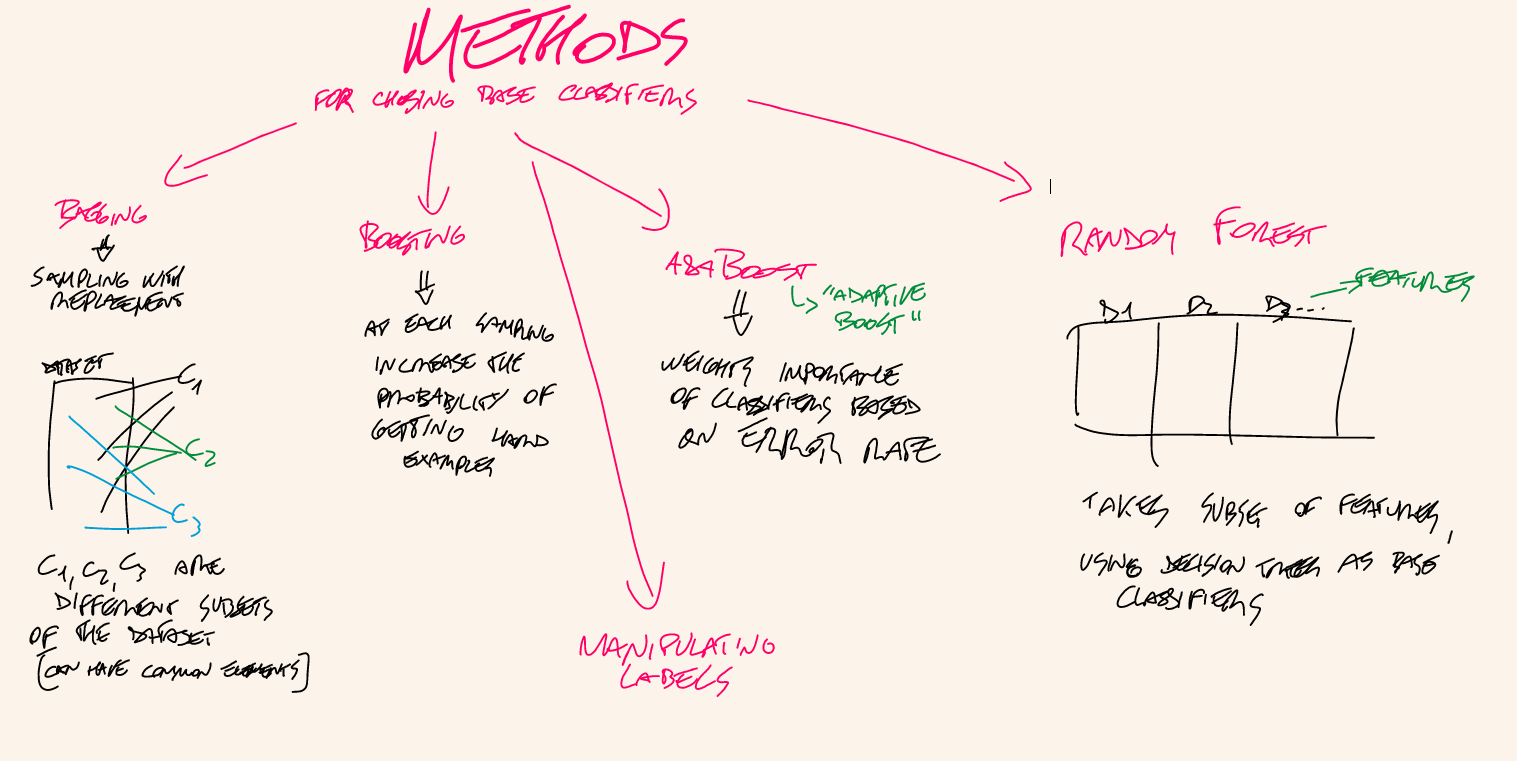 METHODS
FOR CHOSING BASE CLASSIFIERS
BAGGING
SAMPLING WITH
REPLACEMENT
DATASET
C1
C2
C3
C1, C2, C3 ARE
DIFFERENT SUBSETS
OF THE DATASET
(CAN HAVE COMMON ELEMENTS)
BOOSTING
AT EACH SAMPLING
INCREASE THE
PROBABILITY OF
GETTING HARD
EXAMPLES
ADABOOST
"ADAPTIVE
BOOST"
WEIGHTS IMPORTANCE
OF CLASSIFIERS BASED
ON ERROR RATE
MANIPULATING
LABELS
RANDOM FOREST
FEATURES
D1 D2 D3...
TAKES SUBSET OF FEATURES,
USING DECISION TREES AS BASE
CLASSIFIERS